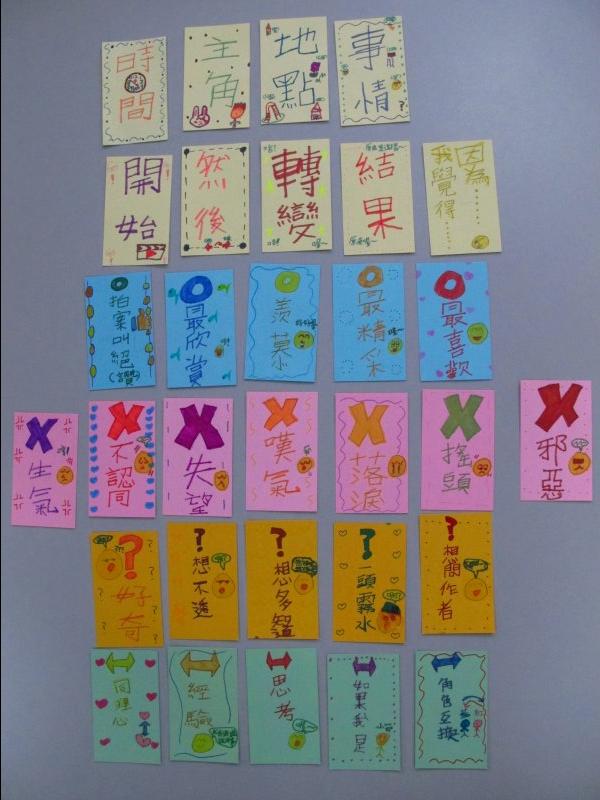 時間
主角
地點
事情
?
開始
然後
轉變
結果
因為……
我覺得……
拍案叫絕
(讚)
最欣賞
羨慕
最精采
最喜歡
生氣
不認同
失望
嘆氣
落淚
搖頭
邪惡
?
好奇
?
想不透
?
想多知道
?
一頭霧水
?
想簡作者
同理心
經驗
思考
如果我是
角色互換